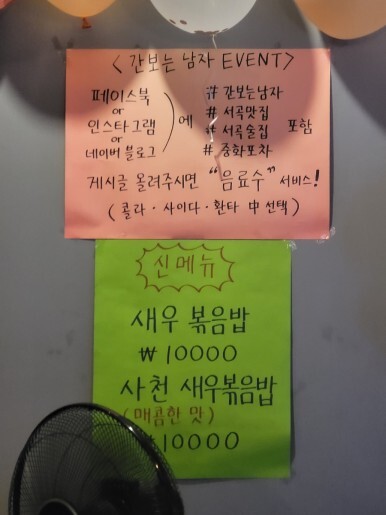 < 간보는 남자 EVENT >
페이스북
or
인스타그램
or
네이버 블로그
에
# 간보는남자
# 서곡맛집
# 서곡술집
# 중화포차
포함
게시글 올려주시면 "음료수" 서비스!
(콜라 · 사이다 · 환타 中 선택)
신메뉴
새우 볶음밥
₩10000
사천 새우볶음밥
(매콤한 맛)
₩10000